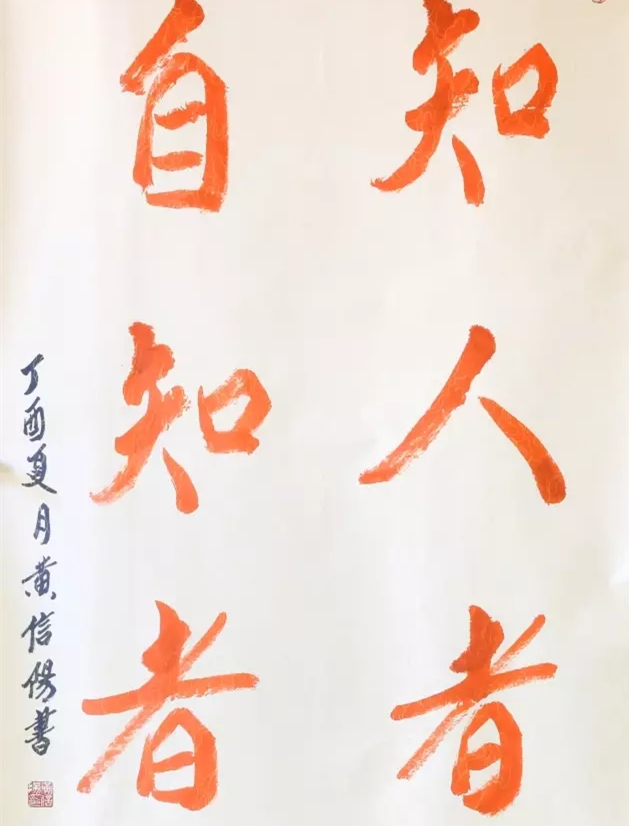 知人者
自知者
丁酉夏月黄信傷書